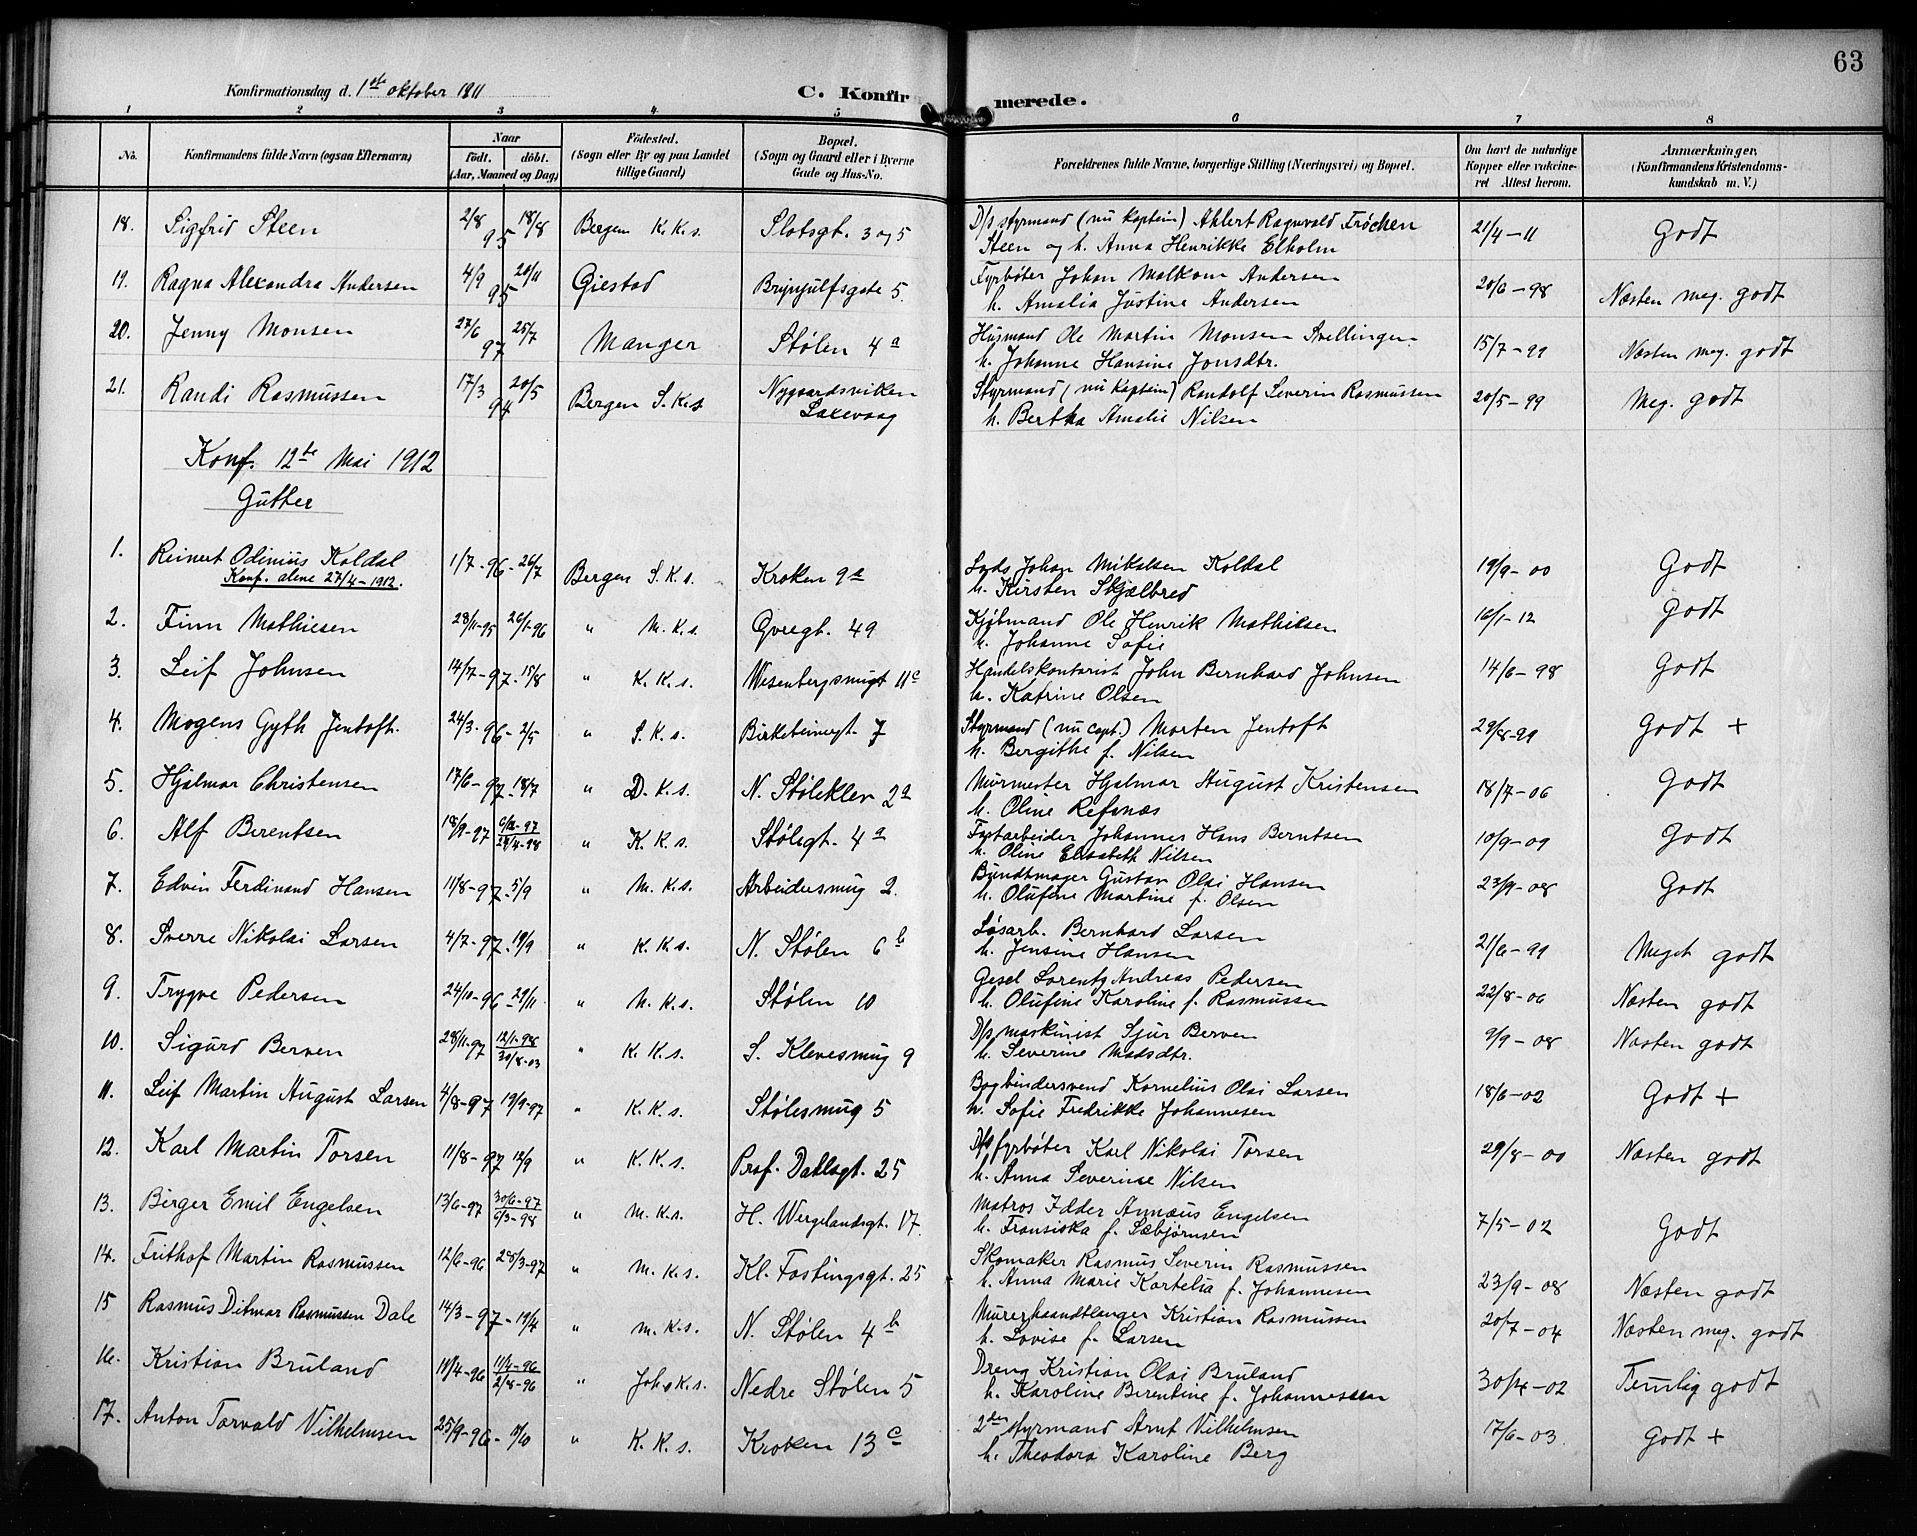 63
Konfirmationsdag d. 1ste oktober 1911
C. Konfirmerede.
1 2 3 4 5 6 7 8
No. Konfirmandens fulde Navn (ogsaa Efternavn) Naar født. døbt. (Aar, Maaned og Dag) Fødested. (Sogn eller By og paa Landet tillige Gaard) Bopæl. (Sogn og Gaard eller i Byerne Gade og Hus-No. Forældrenes fulde Navne, borgerlige Stilling (Næringsvei) og Bopæl. Om havt de naturlige Kopper eller vakcineret Attest herom. Anmærkninger, (Konfirmandens Kristendomskundskab m. V.)
18. Sigfrid Steen 2/8 95 18/8 Bergen K. K. s. Slotsgt. 3 og 5 D/s styrmand (nu kaptein) Ahlert Ragnvald Frøchen 21/4-11 Godt
Steen og h. Anna Henrikke Elholm
19. Ragna Alexandra Andersen 4/9 95 20/11 Gjestad Brynjulfsgate 5. Fyrbøter Johan Malkom Andersen 20/6-98 Næsten meg. godt
h. Amalia Justine Andersen
20. Jenny Monsen 27/6 97 25/7 Manger Stølen 4a Husmand Ole Martin Monsen 15/7-99 Næsten meg. godt
h. Johanne Hansine Jonsdtr.
21. Randi Rasmussen 17/3 94 20/5 Bergen S. K. s. Nygaardsviken Laxevaag Styrmand (nu kaptein) Randolf Severin Rasmussen 20/5-99 Meg. godt
h. Bertha Amalie Nilsen
Konf. 12te Mai 1912
Gutter
1. Reinert Odinius Koldal 1/7-96-26/7 Bergen S. K. s. Kroken 9a Lods Johan Mikalsen Koldal 19/9-00 Godt
Konf. alene 27/4-1912. h. Kirsten Skjælbred
2. Finn Mathiesen 28/11-95 26/1-96 " M. K. s. Øvregt. 49 Kjøbmand Ole Henrik Mathiesen 16/1-12 Godt
h. Johanne Sofie
3. Leif Johnsen 14/7-97-15/8 " K. K. s. Wesenbergsmugt 11c Handelskontorist John Bernhard Johnsen 14/6-98 Godt
h. Katrine Olsen
4. Mogens Gyth Jentoft. 24/3-96-2/5 " S. K. s. Birkebeinergt. 7 Styrmand (nu capt.) Morten Jentoft 29/8-99 Godt +
h. Bergithe f. Nilsen
5. Hjalmar Christensen 17/6-97-18/7 " D. K. s. N. Støleklev 2a Murmester Hjalmar August Kristensen 18/7-06 Godt
h. Oline Refsnæs
6. Alf Berentsen 18/9-97 " K. K. s. Stølsgt. 4a Johannes Hans Berntsen 10/9-09 Godt
h. Oline Elisabeth Nilsen
7. Edvin Ferdinand Hansen 11/8-97-5/9 " M. K. s. Arbeidersmug 2. Bundtmager Gustav Olai Hansen 23/9-08 Godt
h. Olufine Martine f. Olsen
8. Sverre Nikolai Larsen 4/7-97-19/9 " K. K. s. N. Stølen 6b Løsarb. Bernhard Larsen 21/6-99 Meget godt
h. Jensine Hansen
9. Trygve Pedersen 24/10-96-29/11 " N. K. s. Stølen 10 Gesel Lorentz Andreas Pedersen 22/8-06 Næsten godt
h. Olufine Karoline f. Rasmussen
10. Sigurd Berven 28/11-97 12/1-98 30/8-03 " K. K. s. S. Klevesmug 9 D/s maskinist Sjur Berven 9/9-08 Næsten godt
h. Severine Madsdtr.
11. Leif Martin August Larsen 4/8-97 19/9-97 " K. K. s. Stølesmug 5 Bogbindersvend Kornelius Olai Larsen 18/6-02 Godt +
h. Sofie Fredrikke Johannesen
12. Karl Martin Torsen 11/8-97 12/9 " K. K. s. Prof. Dahlsgt. 25 D/s fyrbøter Karl Nikolai Torsen 29/8-00 Næsten godt
h. Anna Severine Nilsen
13. Birger Emil Engelsen 13/6-97 30/6-97 6/3-98 " M. K. s. H. Wergelandsgt. 17. Matros Annæus Engelsen 7/5-02 Godt
h. Fransiska f. Sæbjørnsen
14. Frithof Martin Rasmussen 12/6-96 28/3-97 " M. K. s. Kl. Fastingsgt. 25 Skomaker Rasmus Severin Rasmussen 23/9-08 Næsten godt
h. Anna Marie Kartelia f. Johannesen
15 Rasmus Ditmar Rasmussen Dale 14/3-97-19/4 " M. K. s. N. Stølen 4b Murerhaandtlanger Kristian Rasmussen 20/7-04 Næsten meg. godt
h. Lovise f. Larsen
16. Kristian Bruland 11/4-96 11/4-96 2/8-96 " Joh. K. s. Nedre Stølen 5 Dreng Kristian Olai Bruland 30/4-02 Temlig godt
h. Karoline Berentine f. Johannessen
17. Anton Torvald Vilhelmsen 25/9-96 " K. K. s. Kroken 13c 2den styrmand Arnt Vilhelmsen 17/6-03. Godt +
h. Theodora Karoline Berg